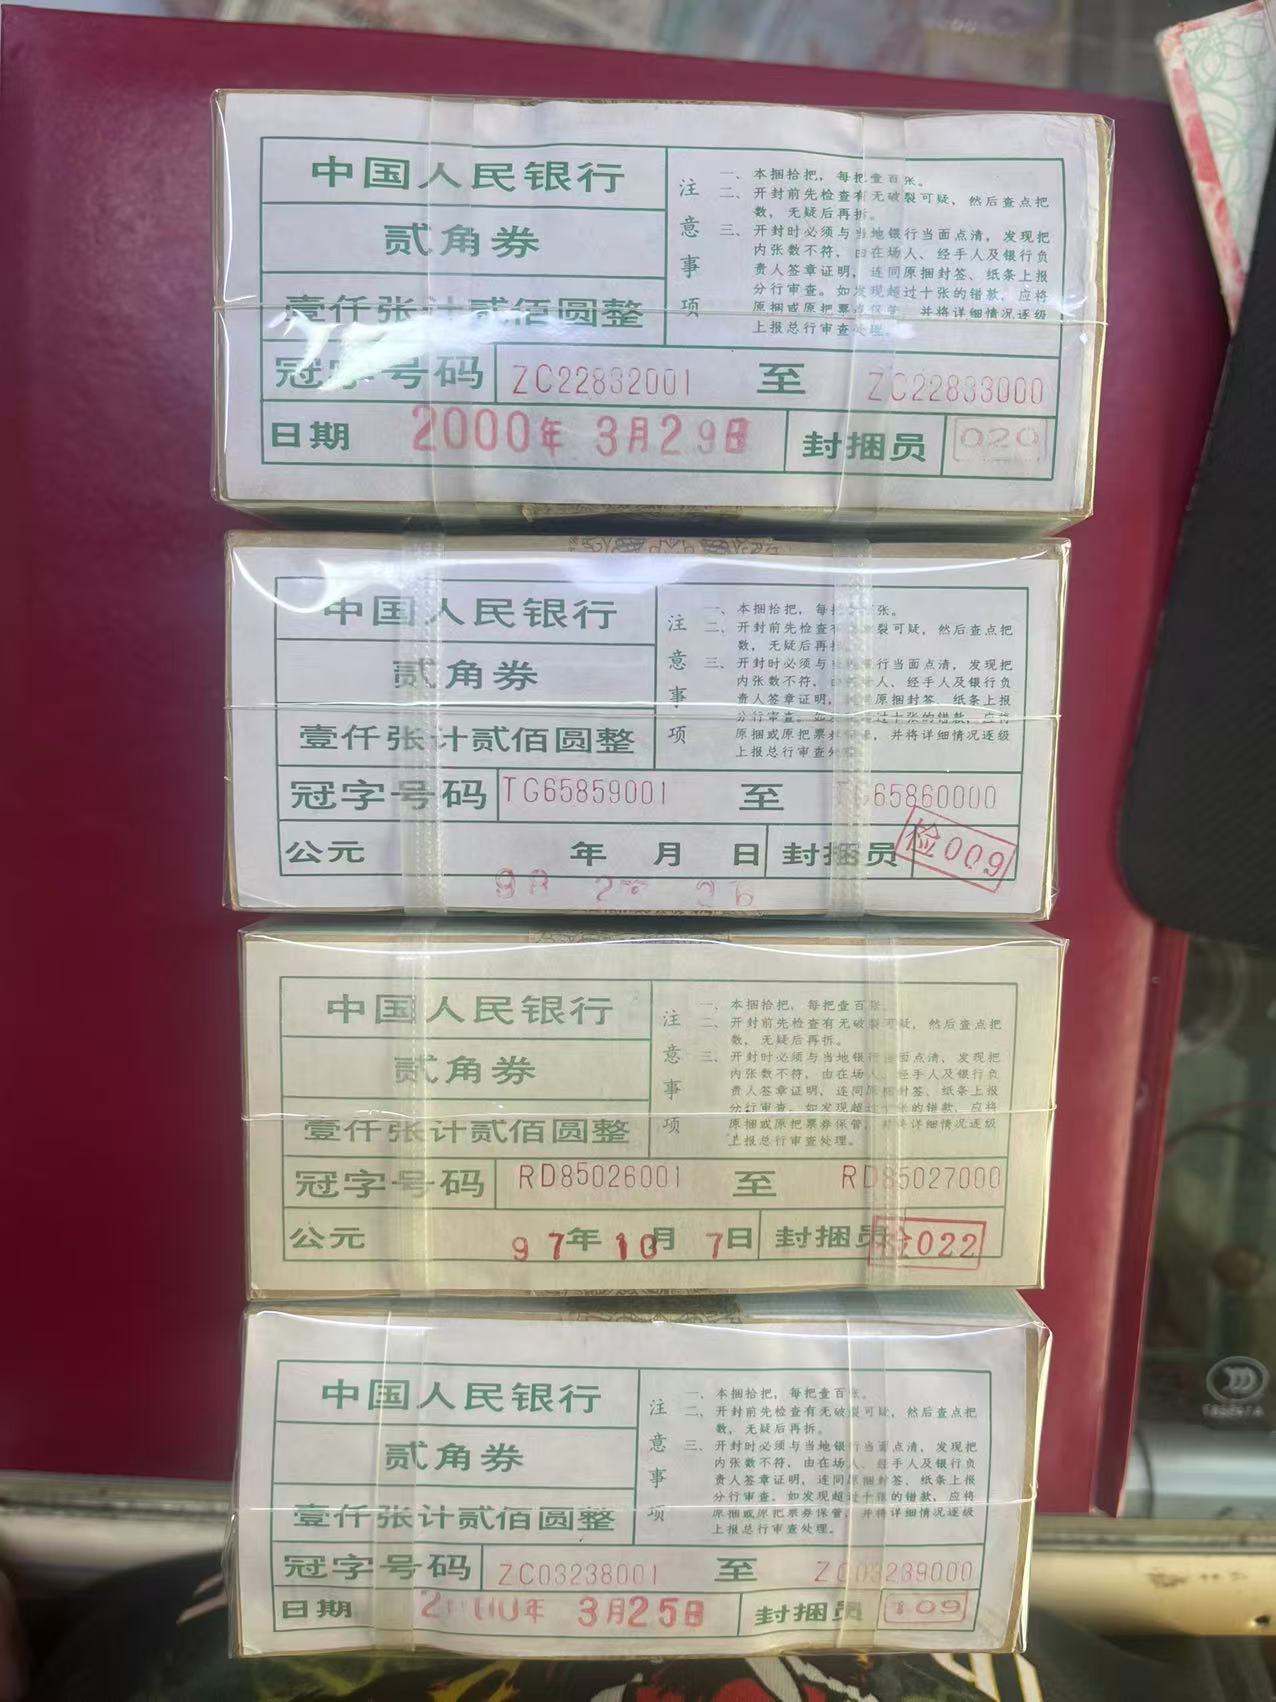 中国人民银行
贰角券
壹仟张计贰佰圆整
冠字号码 ZC22832001 至 ZC22833000
日期 2000年 3月29日 封捆员 020
注意事项
一、本捆拾把，每把壹百张。
二、开封前先检查有无破裂可疑，然后查点把
数，无疑后再拆。
三、开封时必须与当地银行当面点清，发现把
内张数不符，由在场人、经手人及银行负
责人签章证明，连同原捆封签、纸条上报
分行审查。如发现超过十张的错款，应将
原捆或原把票券保管，并将详细情况逐级
上报总行审查处理。
中国人民银行
贰角券
壹仟张计贰佰圆整
冠字号码 TG65859001 至 TG65860000
公元 年 月 日 封捆员 检009
注意事项
一、本捆拾把，每把 张。
二、开封前先检查 裂可疑，然后查点把
数，无疑后再拆
三、开封时必须与 行当面点清，发现把
内张数不符， 人、经手人及银行负
责人签章证明， 原捆封签、纸条上报
分行审查。如 过十张的错款，应将
原捆或原把票 ，并将详细情况逐级
上报总行审查处
中国人民银行
贰角券
壹仟张计贰佰圆整
冠字号码 RD85026001 至 RD85027000
公元 97年 10月 7日 封捆员 检022
注意事项
一、本捆拾把，每把壹百张
二、开封前先检查有无破裂可疑，然后查点把
数，无疑后再拆。
三、开封时必须与当地银行当面点清，发现把
内张数不符，由在场人、经手人及银行负
责人签章证明，连同原捆封签、纸条上报
分行审查。如发现超过十张的错款，应将
原捆或原把票券保管，并将详细情况逐级
上报总行审查处理。
中国人民银行
贰角券
壹仟张计贰佰圆整
冠字号码 ZC03238001 至 ZC03239000
日期 2000年 3月25日 封捆员 109
注意事项
一、本捆拾把，每把壹百张。
二、开封前先检查有无破裂可疑，然后查点把
数，无疑后再拆。
三、开封时必须与当地银行当面点清，发现把
内张数不符，由在场人、经手人及银行负
责人签章证明，连同原捆封签、纸条上报
分行审查。如发现超过十张的错款，应将
原捆或原把票券保管，并将详细情况逐级
上报总行审查处理。